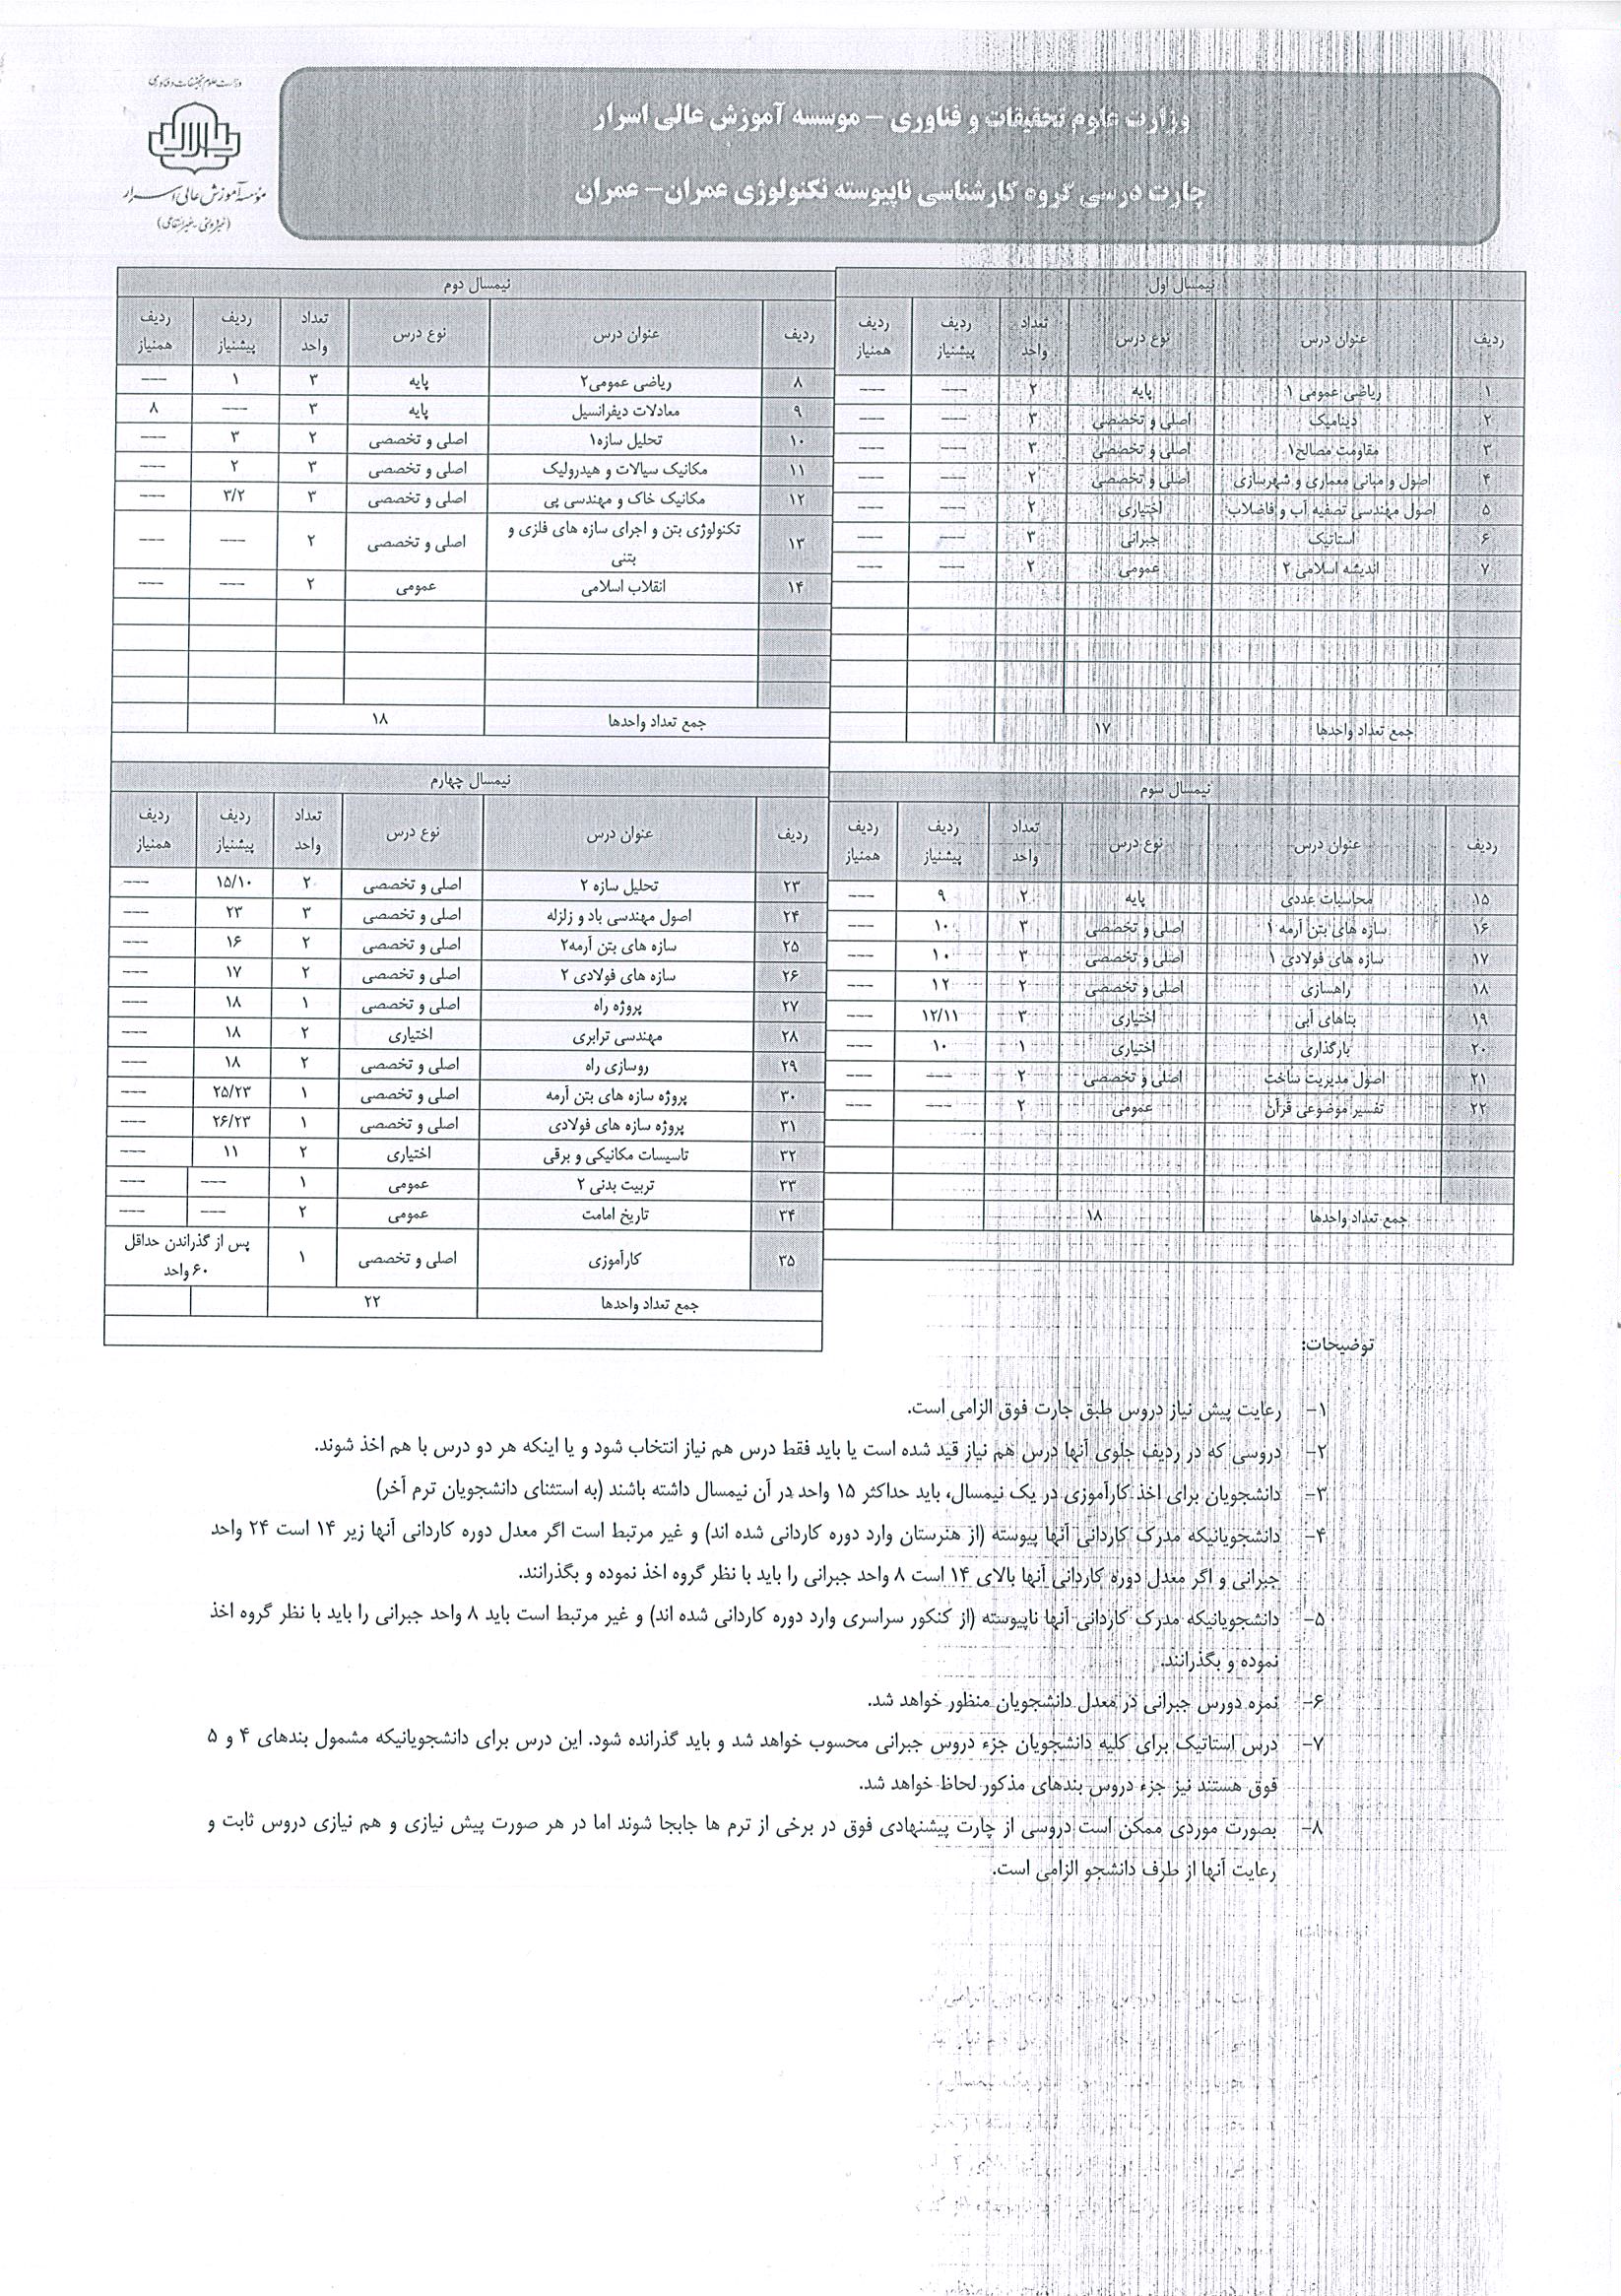 وزارت علوم تحقیقات و فناوری
وزارت علوم تحقیقات و فناوری – موسسه آموزش عالی اسرار
چارت درسی گروه کارشناسی ناپیوسته تکنولوژی عمران– عمران
مؤسسه آموزش عالی اسرار
(غیردولتی-غیرانتفاعی)
نیمسال اول
ردیف عنوان درس نوع درس تعداد واحد ردیف پیشنیاز ردیف همنیاز
۱ ریاضی عمومی ۱ پایه ۲ --- ---
۲ دینامیک اصلی و تخصصی ۳ --- ---
۳ مقاومت مصالح۱ اصلی و تخصصی ۳ --- ---
۴ اصول و مبانی معماری و شهرسازی اصلی و تخصصی ۲ --- ---
۵ اصول مهندسی تصفیه آب و فاضلاب اختیاری ۲ --- ---
۶ استاتیک جبرانی ۳ --- ---
۷ اندیشه اسلامی ۲ عمومی ۲ --- ---
جمع تعداد واحدها ۱۷
نیمسال دوم
ردیف عنوان درس نوع درس تعداد واحد ردیف پیشنیاز ردیف همنیاز
۸ ریاضی عمومی۲ پایه ۳ ۱ ---
۹ معادلات دیفرانسیل پایه ۳ --- ۸
۱۰ تحلیل سازه۱ اصلی و تخصصی ۲ ۳ ---
۱۱ مکانیک سیالات و هیدرولیک اصلی و تخصصی ۳ ۲ ---
۱۲ مکانیک خاک و مهندسی پی اصلی و تخصصی ۳ ۳/۲ ---
۱۳ تکنولوژی بتن و اجرای سازه های فلزی و
بتنی اصلی و تخصصی ۲ --- ---
۱۴ انقلاب اسلامی عمومی ۲ --- ---
جمع تعداد واحدها ۱۸
نیمسال سوم
ردیف عنوان درس نوع درس تعداد واحد ردیف پیشنیاز ردیف همنیاز
۱۵ محاسبات عددی پایه ۲ ۹ ---
۱۶ سازه های بتن آرمه ۱ اصلی و تخصصی ۳ ۱۰ ---
۱۷ سازه های فولادی ۱ اصلی و تخصصی ۳ ۱۰ ---
۱۸ راهسازی اصلی و تخصصی ۲ ۱۲ ---
۱۹ بناهای آبی اختیاری ۳ ۱۲/۱۱ ---
۲۰ بارگذاری اختیاری ۱ ۱۰ ---
۲۱ اصول مدیریت ساخت اصلی و تخصصی ۲ --- ---
۲۲ تفسیر موضوعی قرآن عمومی ۲ --- ---
جمع تعداد واحدها ۱۸
نیمسال چهارم
ردیف عنوان درس نوع درس تعداد واحد ردیف پیشنیاز ردیف همنیاز
۲۳ تحلیل سازه ۲ اصلی و تخصصی ۲ ۱۵/۱۰ ---
۲۴ اصول مهندسی باد و زلزله اصلی و تخصصی ۳ ۲۳ ---
۲۵ سازه های بتن آرمه۲ اصلی و تخصصی ۲ ۱۶ ---
۲۶ سازه های فولادی ۲ اصلی و تخصصی ۲ ۱۷ ---
۲۷ پروژه راه اصلی و تخصصی ۱ ۱۸ ---
۲۸ مهندسی ترابری اختیاری ۲ ۱۸ ---
۲۹ روسازی راه اصلی و تخصصی ۲ ۱۸ ---
۳۰ پروژه سازه های بتن آرمه اصلی و تخصصی ۱ ۲۵/۲۳ ---
۳۱ پروژه سازه های فولادی اصلی و تخصصی ۱ ۲۶/۲۳ ---
۳۲ تاسیسات مکانیکی و برقی اختیاری ۲ ۱۱ ---
۳۳ تربیت بدنی ۲ عمومی ۱ --- ---
۳۴ تاریخ امامت عمومی ۲ --- ---
۳۵ کارآموزی اصلی و تخصصی ۱ پس از گذراندن حداقل
۶۰ واحد
جمع تعداد واحدها ۲۲
توضیحات:
۱- رعایت پیش نیاز دروس طبق چارت فوق الزامی است.
۲- دروسی که در ردیف جلوی آنها درس هم نیاز قید شده است یا باید فقط درس هم نیاز انتخاب شود و یا اینکه هر دو درس با هم اخذ شوند.
۳- دانشجویان برای اخذ کارآموزی در یک نیمسال، باید حداکثر ۱۵ واحد در آن نیمسال داشته باشند (به استثنای دانشجویان ترم آخر)
۴- دانشجویانیکه مدرک کاردانی آنها پیوسته (از هنرستان وارد دوره کاردانی شده اند) و غیر مرتبط است اگر معدل دوره کاردانی آنها زیر ۱۴ است ۲۴ واحد
جبرانی و اگر معدل دوره کاردانی آنها بالای ۱۴ است ۸ واحد جبرانی را باید با نظر گروه اخذ نموده و بگذرانند.
۵- دانشجویانیکه مدرک کاردانی آنها ناپیوسته (از کنکور سراسری وارد دوره کاردانی شده اند) و غیر مرتبط است باید ۸ واحد جبرانی را باید با نظر گروه اخذ
نموده و بگذرانند.
۶- نمره دورس جبرانی در معدل دانشجویان منظور خواهد شد.
۷- درس استاتیک برای کلیه دانشجویان جزء دروس جبرانی محسوب خواهد شد و باید گذرانده شود. این درس برای دانشجویانیکه مشمول بندهای ۴ و ۵
فوق هستند نیز جزء دروس بندهای مذکور لحاظ خواهد شد.
۸- بصورت موردی ممکن است دروسی از چارت پیشنهادی فوق در برخی از ترم ها جابجا شوند اما در هر صورت پیش نیازی و هم نیازی دروس ثابت و
رعایت آنها از طرف دانشجو الزامی است.